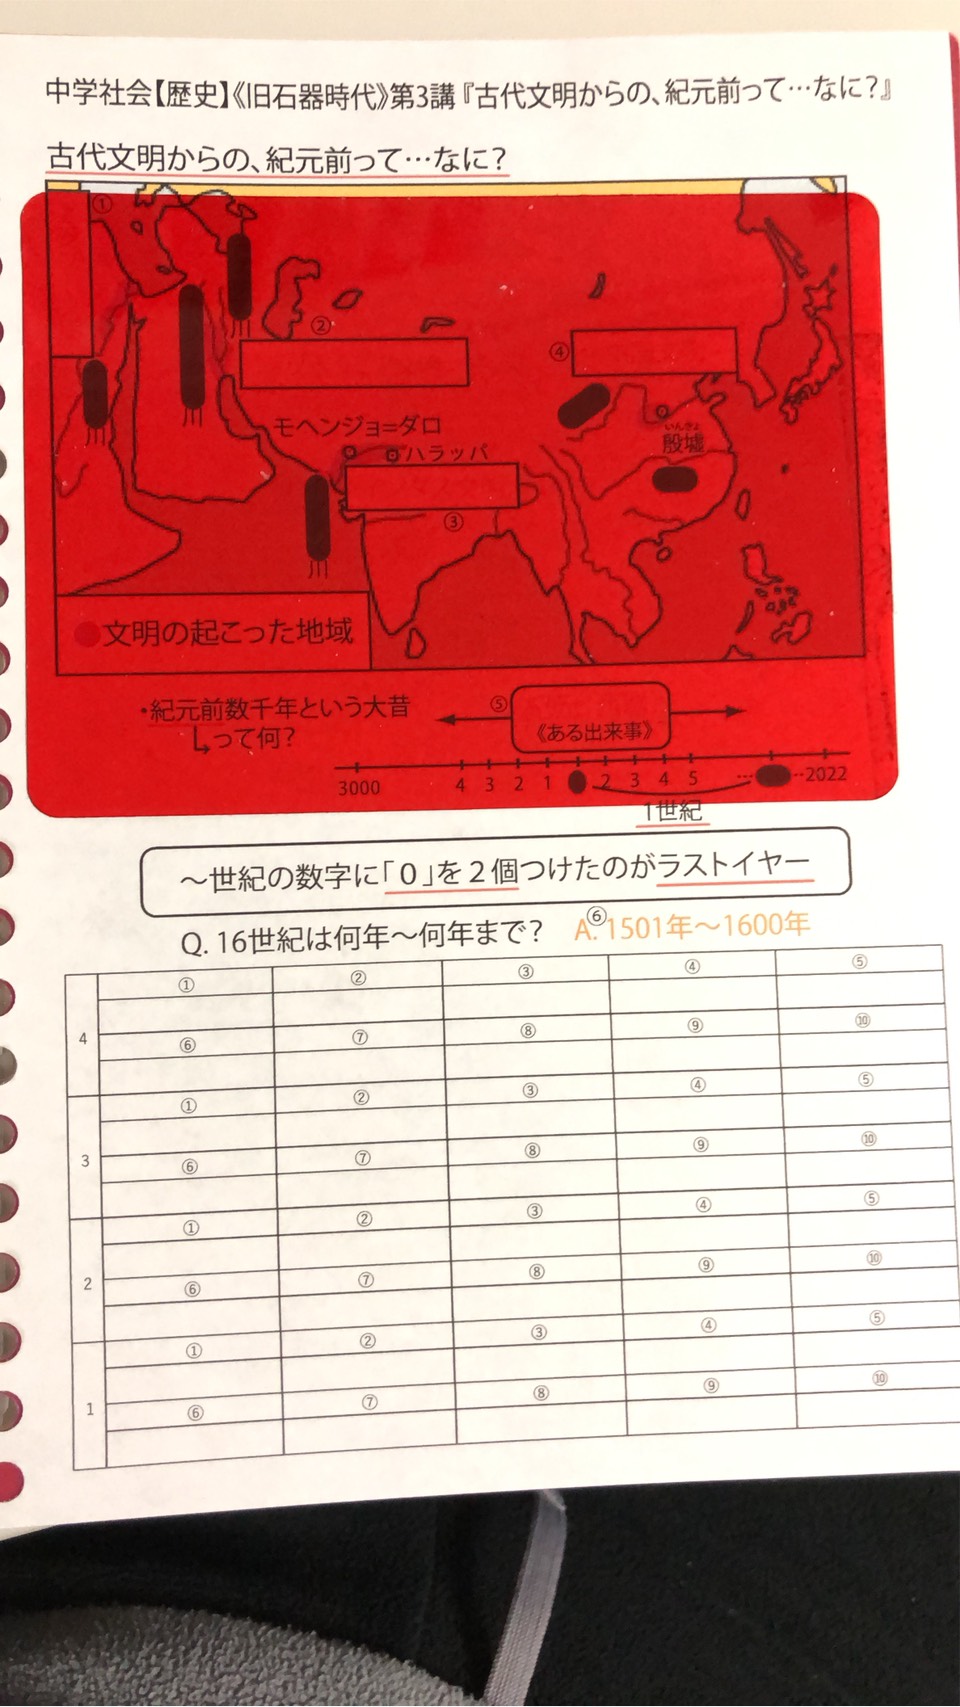 中学社会【歴史】《旧石器時代》第3講『古代文明からの、紀元前って…なに？』
古代文明からの、紀元前って…なに？
①
②
④
モヘンジョ=ダロ
ハラッパ
いんきょ
殷墟
③
文明の起こった地域
・紀元前数千年という大昔
って何？
⑤
《ある出来事》
3000 4 3 2 1 2 3 4 5 … …2022
1世紀
～世紀の数字に「０」を２個つけたのがラストイヤー
Q. 16世紀は何年～何年まで？ ⑥ A. 1501年～1600年
① ② ③ ④ ⑤
4
⑥ ⑦ ⑧ ⑨ ⑩
① ② ③ ④ ⑤
3
⑥ ⑦ ⑧ ⑨ ⑩
① ② ③ ④ ⑤
2
⑥ ⑦ ⑧ ⑨ ⑩
① ② ③ ④ ⑤
1
⑥ ⑦ ⑧ ⑨ ⑩